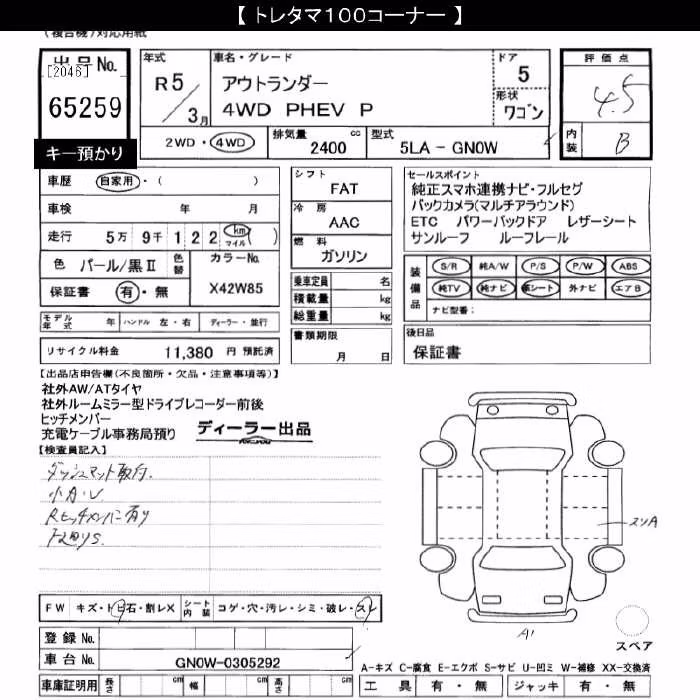 【 トレタマ100コーナー 】
(複合機)対応用紙
出品No.
[2046]
65259
キー預かり
年式
R5/3月
車名・グレード
アウトランダー
4WD PHEV P
ドア
5
形状
ワゴン
評価点
4.5
内装
B
2WD・4WD
排気量
2400 cc
型式
5LA - GN0W
車歴 自家用・( )
車検 年 月
走行 5万 9千 1 2 2 km マイル ( )
色 パール/黒Ⅱ 色替
カラーNo.
X42W85
保証書 有・無
モデル年式 年 ハンドル 左・右 ディーラー・並行
リサイクル料金 11,380 円 預託済
シフト
FAT
冷房
AAC
燃料
ガソリン
乗車定員 名
積載量 kg
総重量 kg
書類期限
月 日
セールスポイント
純正スマホ連携ナビ・フルセグ
バックカメラ(マルチアラウンド)
ETC パワーバックドア レザーシート
サンルーフ ルーフレール
装備品
S/R 純A/W P/S P/W ABS
純TV 純ナビ 革シート 外ナビ エアB
ナビ型番:
後日品
保証書
【出品店申告欄(不良箇所・欠品・注意事項等)】
社外AW/ATタイヤ
社外ルームミラー型ドライブレコーダー前後
ヒッチメンバー
充電ケーブル事務局預り
ディーラー出品
【検査員記入】
ダッシュマット取付.
小A・U
Rヒッチメンバー有り
FW キズ・トビ石・割レX シート内装 コゲ・穴・汚レ・シミ・破レ・スレ
スソA
A1
スペア
登録No.
車台No. GN0W-0305292
車庫証明用 長さ cm 幅 cm 高さ cm
A-キズ C-腐食 E-エクボ S-サビ U-凹ミ W-補修 XX-交換済
工具 有・無 ジャッキ 有・無